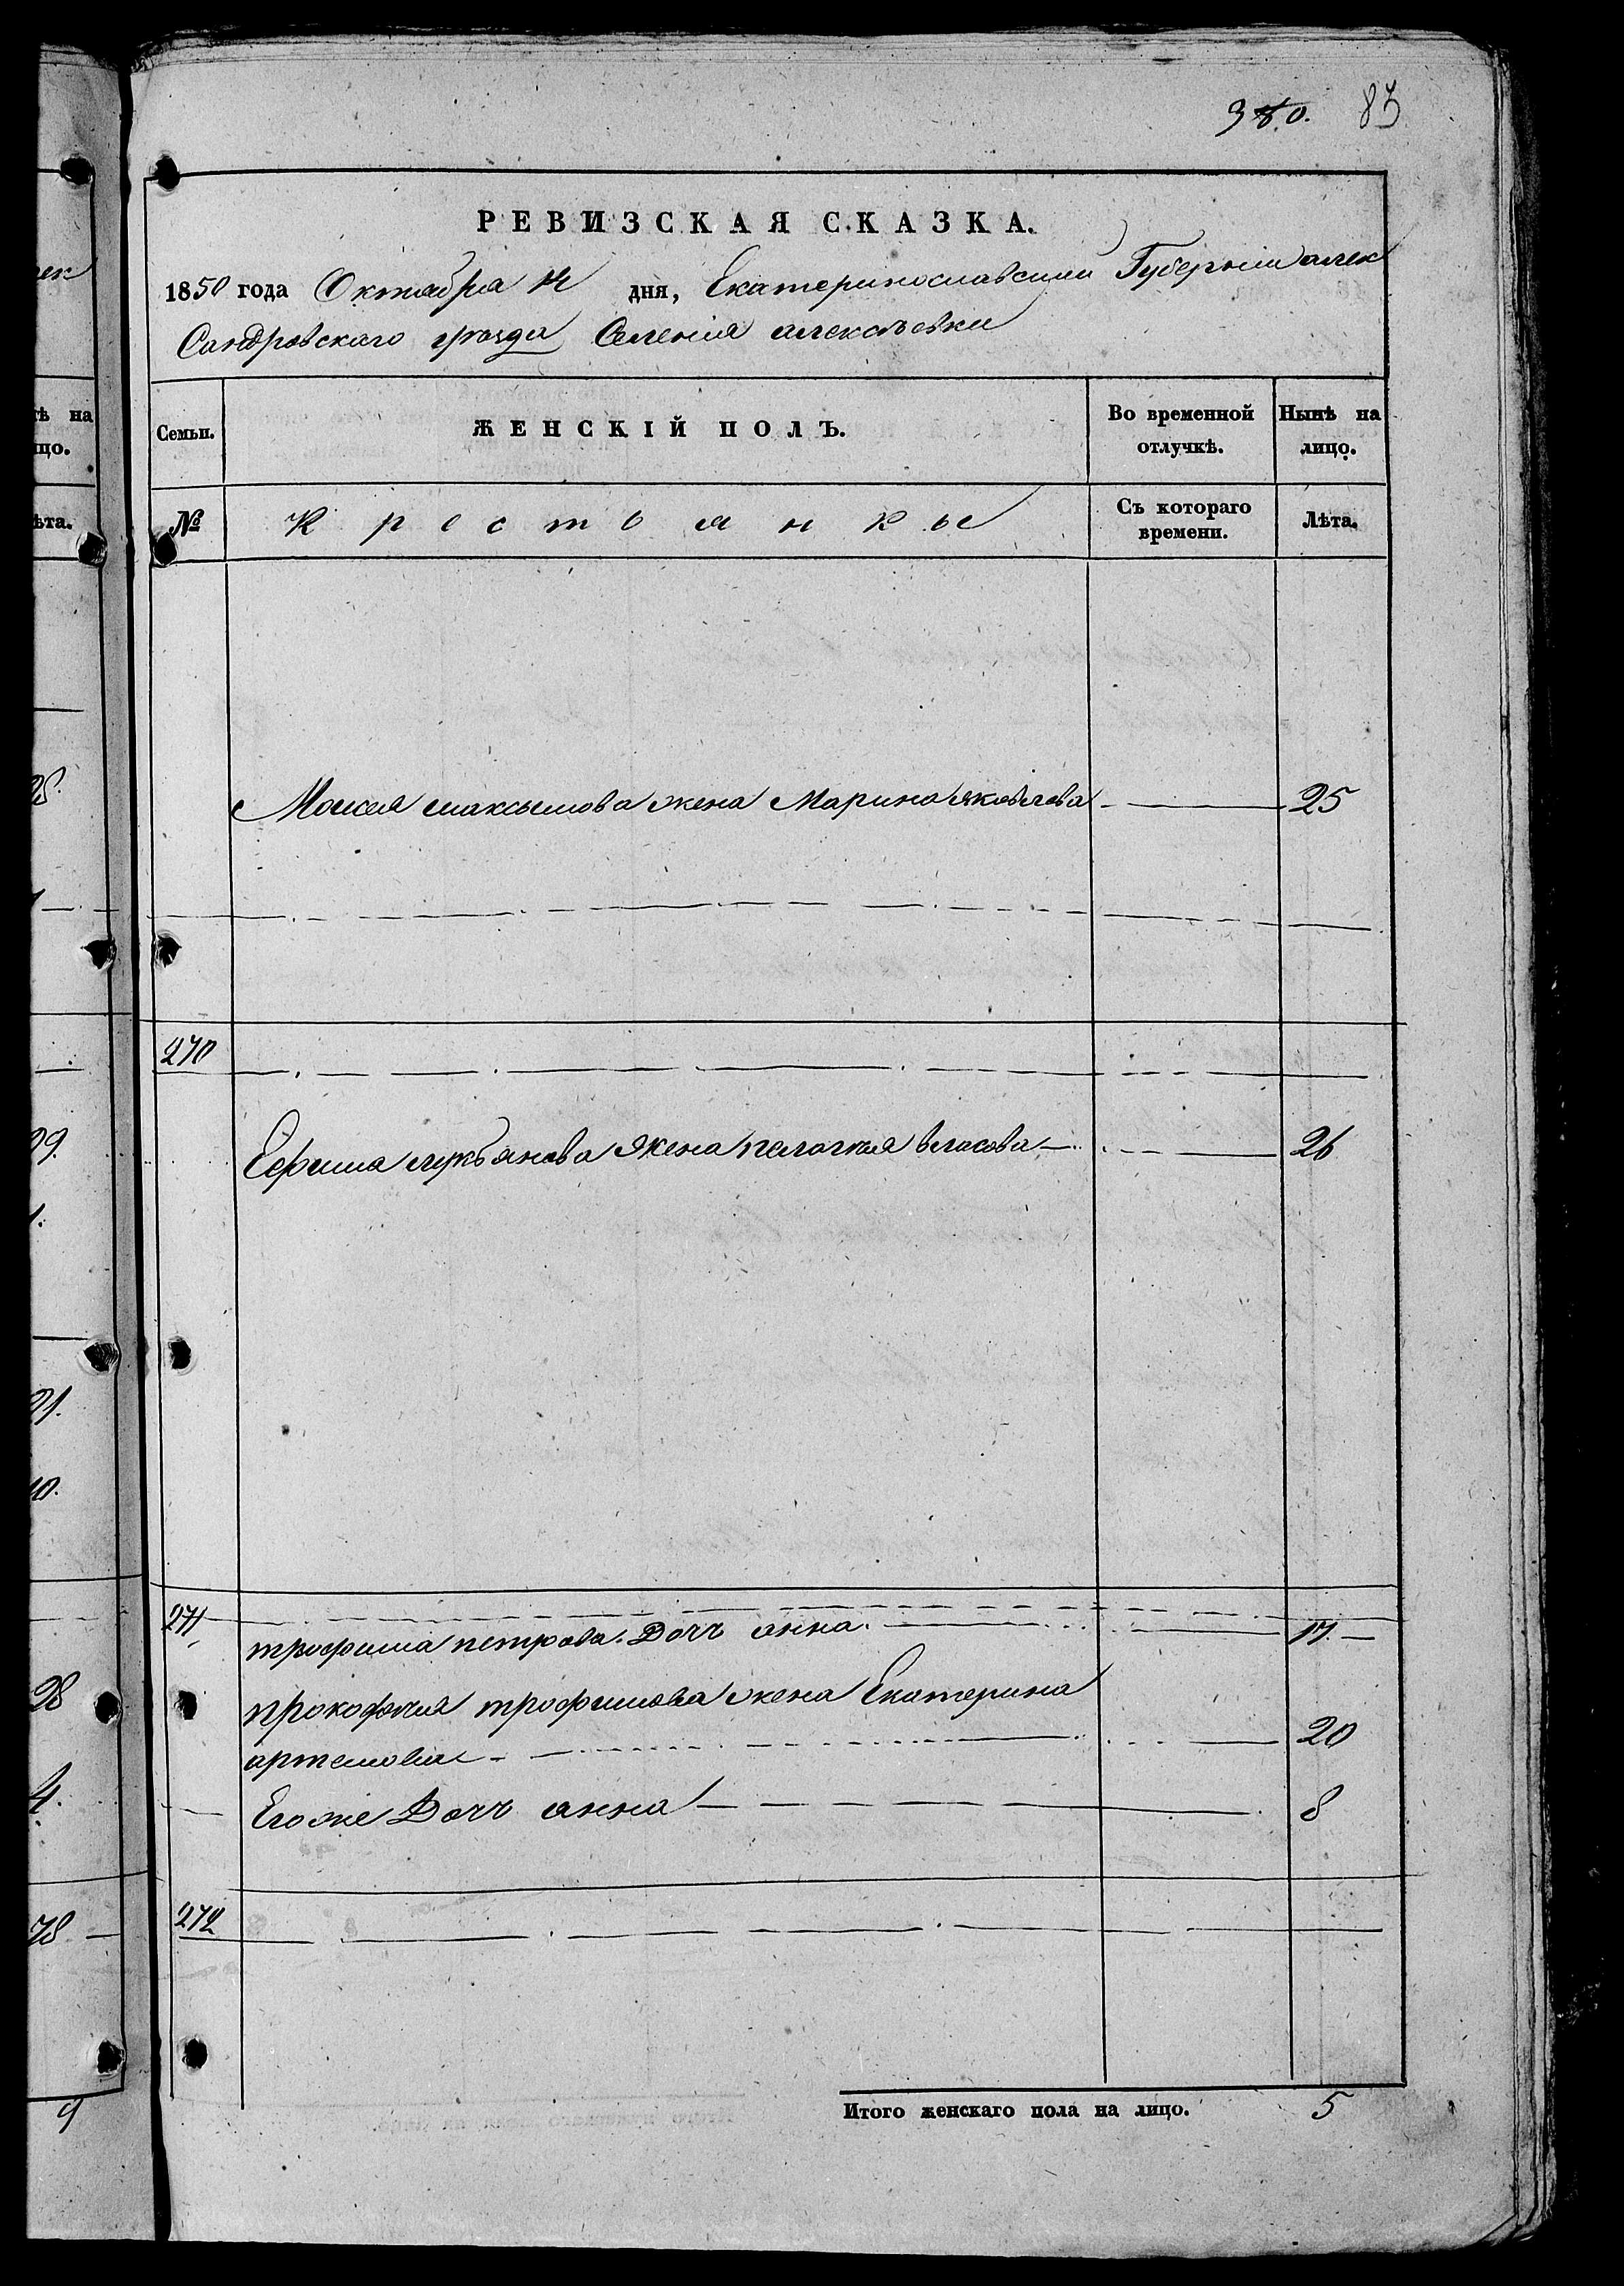 380. 83
РЕВИЗСКАЯ СКАЗКА.
1850 года Октября дня, Екатеринославской Губернии алек
Сандровскаго уезда Селенія алексѣевки
Семьи. ЖЕНСКІЙ ПОЛЪ. Во временной отлучкѣ. Нынѣ на лицо.
№ Крестьянкы Съ котораго времени. Лѣта.
Моисея максымова жена Марина яковлева 25
270
Ефима лукьянова жена пелагия власова 26
271
трофима петрова Дочь анна 17
прокофия трофимова жена Екатерина
артемова 20
Его же Дочь анна 8
272
Итого женскаго пола на лицо. 5
ек
тѣ на
цо.
ѣта.
28
4.
78
9